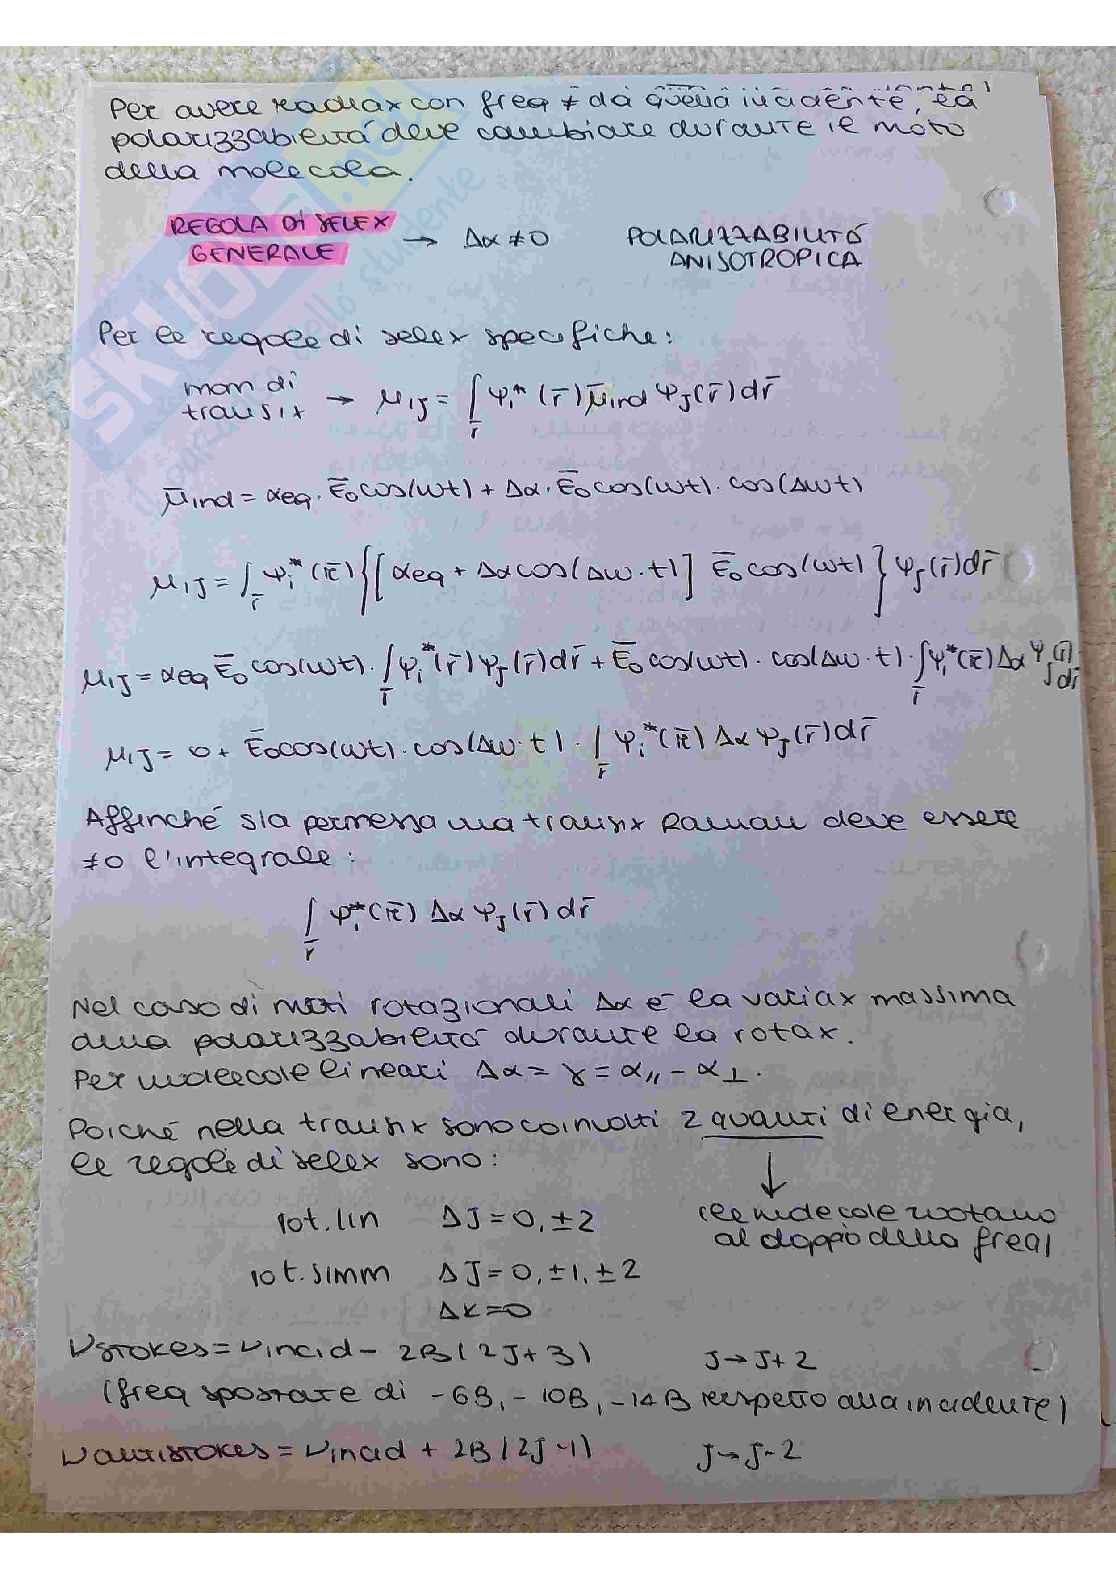 Per avere radiax con freq ≠ da quella incidente, la
polarizzabilità deve cambiare durante il moto
della molecola.
REGOLA DI SELEX
GENERALE → Δα ≠ 0 POLARIZZABILITÀ
ANISOTROPICA
Per le regole di selex specifiche:
mom di
transix → μ_IJ = ∫_r̄ ψ_i* (r̄) μ̄_ind ψ_J(r̄) dr̄
μ̄_ind = α_eq · Ē₀ cos(ωt) + Δα · Ē₀ cos(ωt) · cos(Δωt)
μ_IJ = ∫_r̄ ψ_i* (r̄) {[α_eq + Δα cos(Δω·t)] Ē₀ cos(ωt)} ψ_J(r̄) dr̄
μ_IJ = α_eq Ē₀ cos(ωt) · ∫_r̄ ψ_i*(r̄) ψ_J(r̄) dr̄ + Ē₀ cos(ωt) · cos(Δω·t) · ∫_r̄ ψ_i*(r̄) Δα ψ_J(r̄) dr̄
μ_IJ = 0 + Ē₀ cos(ωt) · cos(Δω·t) · ∫_r̄ ψ_i*(r̄) Δα ψ_J(r̄) dr̄
Affinché sia permessa una transix Raman deve essere
≠0 l'integrale:
∫_r̄ ψ_i*(r̄) Δα ψ_J(r̄) dr̄
Nel caso di moti rotazionali Δα è la variax massima
della polarizzabilità durante la rotax.
Per molecole lineari Δα = γ = α_∥ - α_⊥.
Poiché nella transix sono coinvolti 2 quanti di energia,
le regole di selex sono:
rot. lin ΔJ = 0, ±2 (le molecole ruotano
al doppio della freq)
rot. simm ΔJ = 0, ±1, ±2
ΔK = 0
ν_STOKES = ν_incid - 2B(2J+3) J→J+2
(freq spostate di -6B, -10B, -14B rispetto alla incidente)
ν_ANTISTOKES = ν_incid + 2B(2J-1) J→J-2